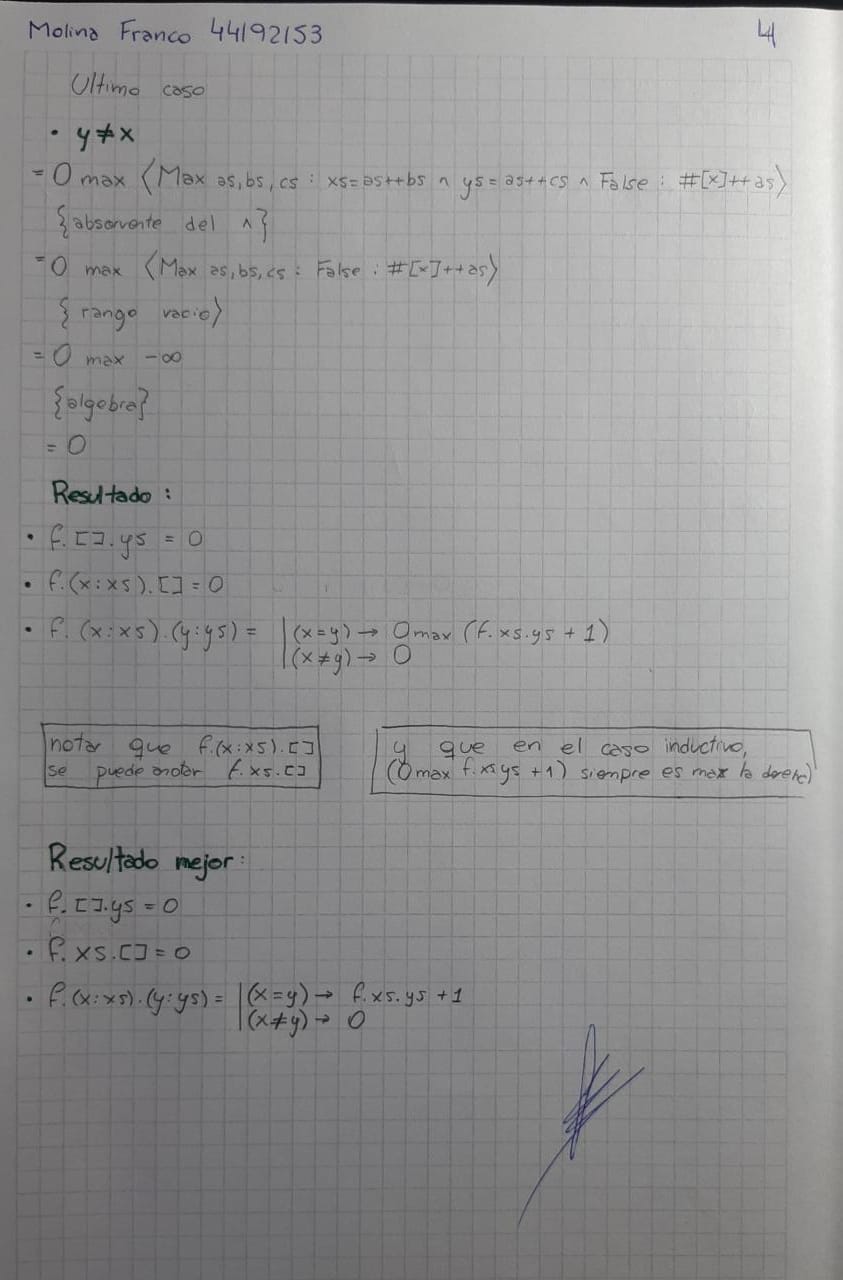 Molina Franco 44192153
4
Ultimo caso
• y≠x
= 0 max ⟨Max as,bs,cs : xs=as++bs ∧ ys=as++cs ∧ False : #[x]++as⟩
{absorvente del ∧}
= 0 max ⟨Max as,bs,cs : False : #[x]++as⟩
{rango vacio⟩
= 0 max -∞
{algebra}
= 0
Resultado :
• f.[].ys = 0
• f.(x:xs).[] = 0
• f.(x:xs).(y:ys) = |(x=y) → 0 max (f.xs.ys + 1)
|(x≠y) → 0
notar que f.(x:xs).[]
se puede anotar f.xs.[]
y que en el caso inductivo,
(0 max f.xs ys + 1) siempre es max la
Resultado mejor:
• f.[].ys = 0
• f.xs.[] = 0
• f.(x:xs).(y:ys) = |(x=y) → f.xs.ys + 1
|(x≠y) → 0